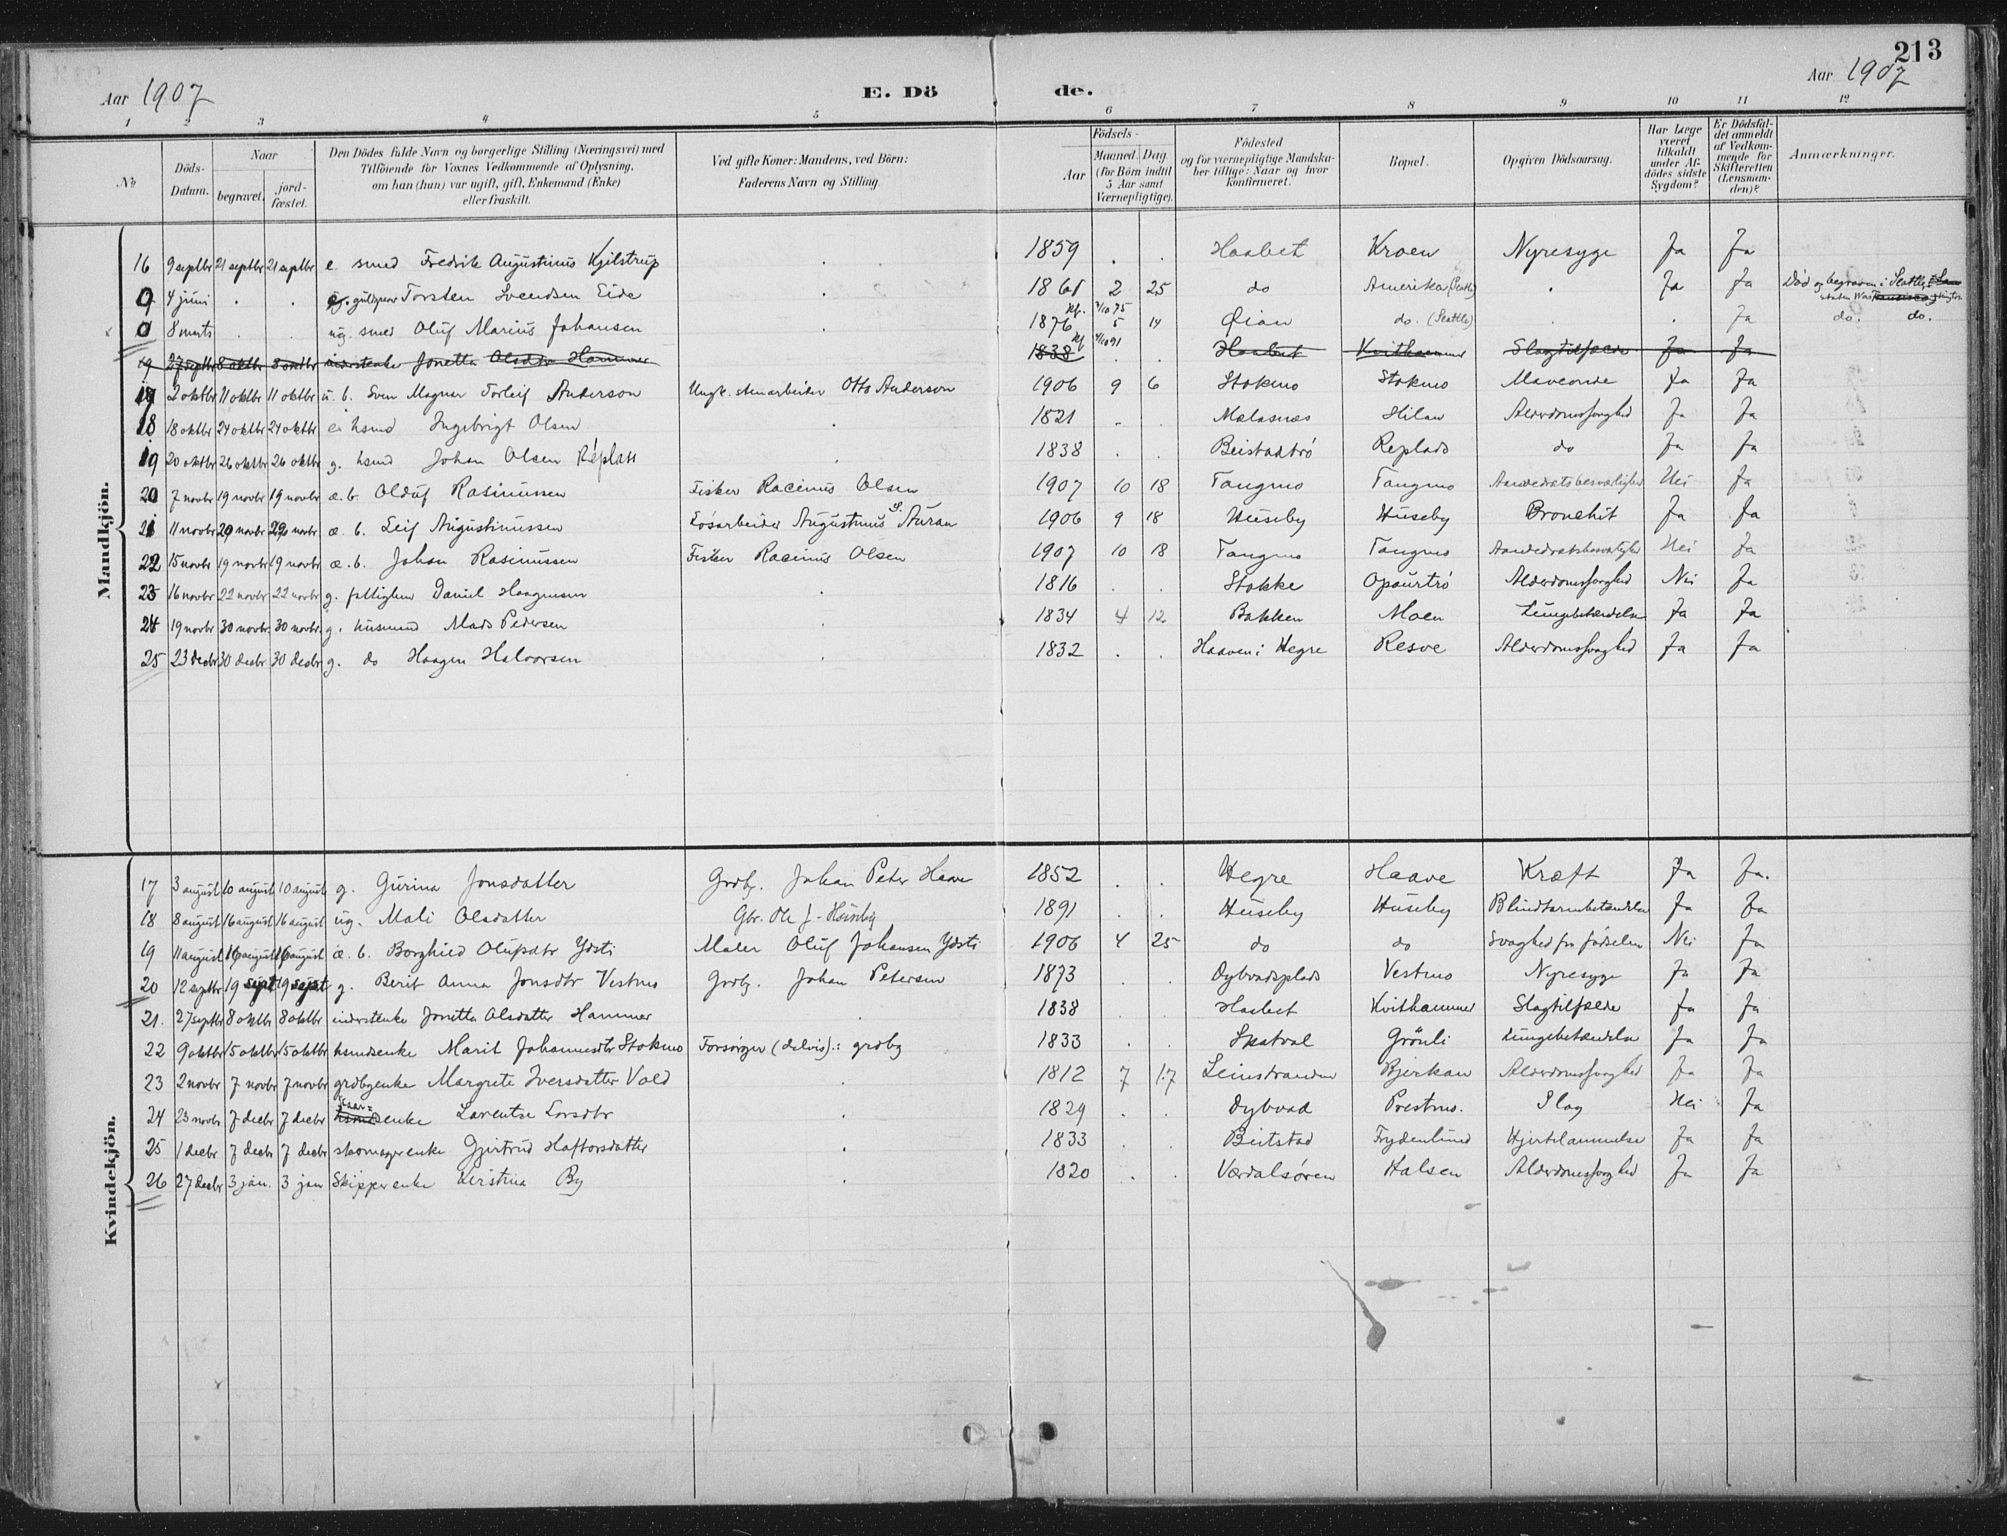 213
Aar 1907
E. Dö de.
Aar 1907
1 2 3 4 5 6 7 8 9 10 11 12
No
Döds-Datum.
Naar
begravet.
jord-fæstet.
Den Dödes fulde Navn og borgerlige Stilling (Næringsvei) med
Tilföiende for Voxnes Vedkommende af Oplysning,
om han (hun) var ugift, gift, Enkemand (Enke)
eller fraskilt.
Ved gifte Koner: Mandens, ved Börn:
Faderens Navn og Stilling.
Födsels-
Aar
Maaned. Dag
(for Börn indtil
5 Aar samt
Værnepligtige).
Födested
og for værnepligtige Mandska-
ber tillige: Naar og hvor
konfirmeret.
Bopæl.
Opgiven Dödsaarsag.
Har Læge
været
tilkaldt
under Af-
dödes sidste
Sygdom?
Er Dödsfal-
det anmeldt
af Vedkom-
mende for
Skifteretten
(Lensman-
den)?
Anmærkninger.
Mandkjön.
16 9 septbr 21 septbr 21 septbr e. smed Fredrik Augustinus Kjilstrup . 1859 . . Haabet Kroen Nyresyge Ja Ja
0 4 juni . . Torsten Svendsen Eide . 1861 2 25 do Amerika (Seattle) . Ja Ja Död og begraven i Seattle
0 8 marts . . ug. smed Oluf Marius Johansen . 1876 5 14 Øian do. (Seattle) . . Ja do. do.
19 27 septbr 8 oktbr 8 oktbr inderstenke Jonetta Olsdtr Hammer 1838 . . Haabet Kvithammer Slagtilfælde Ja Ja
17 2 oktbr 11 oktbr 11 oktbr u. b. Sven Magnar Torleif Anderson Ungk. stenarbeider Otto Anderson 1906 9 6 Stokmo Stokmo Maveonde Ja Ja
18 18 oktbr 24 oktbr 24 oktbr e. hsmd Ingebrigt Olsen . 1821 . . Malasnæs Hilan Alderdomssvaghed Ja Ja
19 20 oktbr 26 oktbr 26 oktbr g. hsmd Johan Olsen Replads . 1838 . . Beistadtrö Replads do Ja Ja
20 7 novbr 19 novbr 19 novbr æ. b. Olduf Rasmussen Fisker Racinus Olsen 1907 10 18 Tangmo Tangmo Aandedrætsbesværligheder Nei Ja
21 11 novbr 29 novbr 29 novbr æ. b. Leif Augustinussen Lösarbeider Augustinus S. Auran 1906 9 18 Huseby Huseby Bronchit Ja Ja
22 15 novbr 19 novbr 19 novbr æ. b. Johan Rasmussen Fisker Racinus Olsen 1907 10 18 Tangmo Tangmo Nei Ja
23 16 novbr 22 novbr 22 novbr g. fattiglem Daniel Haagensen . 1816 . . Stokke Opaurtrö Alderdomssvaghed Nei Ja
24 19 novbr 30 novbr. 30 novbr. g. husmand Mads Pedersen . 1834 4 12 Bakken Moen Lungebetændelse Ja Ja
25 23 decbr 30 decbr 30 decbr g. do Haagen Halvorsen . 1832 . . Haaven i Hegre Resve Alderdomssvaghed Ja Ja
Kvindekjön.
17 3 august 10 august 10 august g. Gurina Jonsdatter Grdbr. Johan Peter Haave 1852 . . Hegre Haave Kræft Ja Ja.
18 8 august 16 august 16 august ug. Mali Olsdatter Gbr. Ole J. Huseby 1891 . . Huseby Huseby Blindtarmbetændelse Ja Ja
19 11 august 16 august 16 august æ. b. Borghild Olufsdtr Ydsti Maler Oluf Johansen Ydsti 1906 4 25 do do Svaghed fra födselen Nei Ja
20 12 septbr 19 sept 19 sept g. Berit Anna Jonsdtr Vestmo Grdbr. Johan Petersen 1873 . . Dybvadsplads Vestmo Nyresyge Ja Ja
21. 27 septbr 8 oktbr 8 oktbr inderstenke Jonetta Olsdatter Hammer . 1838 . . Haabet Kvithammer Slagtilfælde Ja Ja
22 9 oktbr 15 oktbr 15 oktbr husmdsenke Marit Johannesdtr Stokmo Forsörger (delvis): grdbr 1833 . . Skatval Grönli Lungebetændelse Ja Ja
23 2 novbr 7 novbr 7 novbr grdbrenke Margrete Iversdatter Vold . 1812 7 17 Leinstranden Bjerkan Alderdomssvaghed Ja Ja
24 23 novbr 7 decbr 7 decbr kaarenke Larentse Larsdtr . 1829 . . Dybvad Prestmo. Slag Nei Ja
25 1 decbr 7 decbr 7 decbr skomagerenke Gjertrud Haftorsdatter . 1833 . . Beitstad Frydenlund Hjertelammelse Ja Ja
26 27 decbr 3 jan. 3 jan Skipperenke Kirstina By . 1820 . . Værdalsören Halsen Alderdomssvaghed Ja Ja